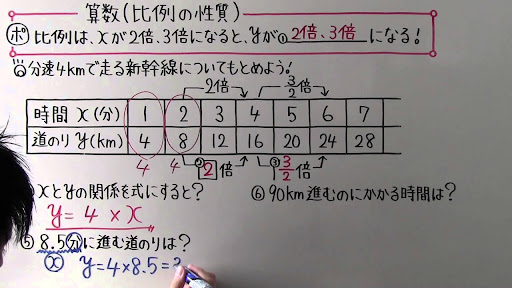 算数(比例の性質)
ポ 比例は、xが2倍、3倍になると、yが① 2倍、3倍 になる!
分速4kmで走る新幹線についてもとめよう!
2倍 3/2倍
時間 x(分) 1 2 3 4 5 6 7
道のり y(km) 4 8 12 16 20 24 28
4 4 ② 2倍 ③ 3/2倍
xとyの関係を式にすると?
y=4×x
⑥90km進むのにかかる時間は?
⑤ 8.5分に進む道のりは?
x y=4×8.5=3